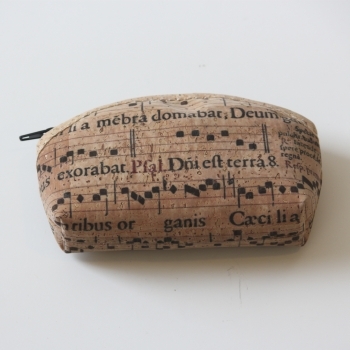 li a mēbra domabat, Deum
exorabat. Psal. Dñi est terra. 8.
ribus or ganis Cæci li a